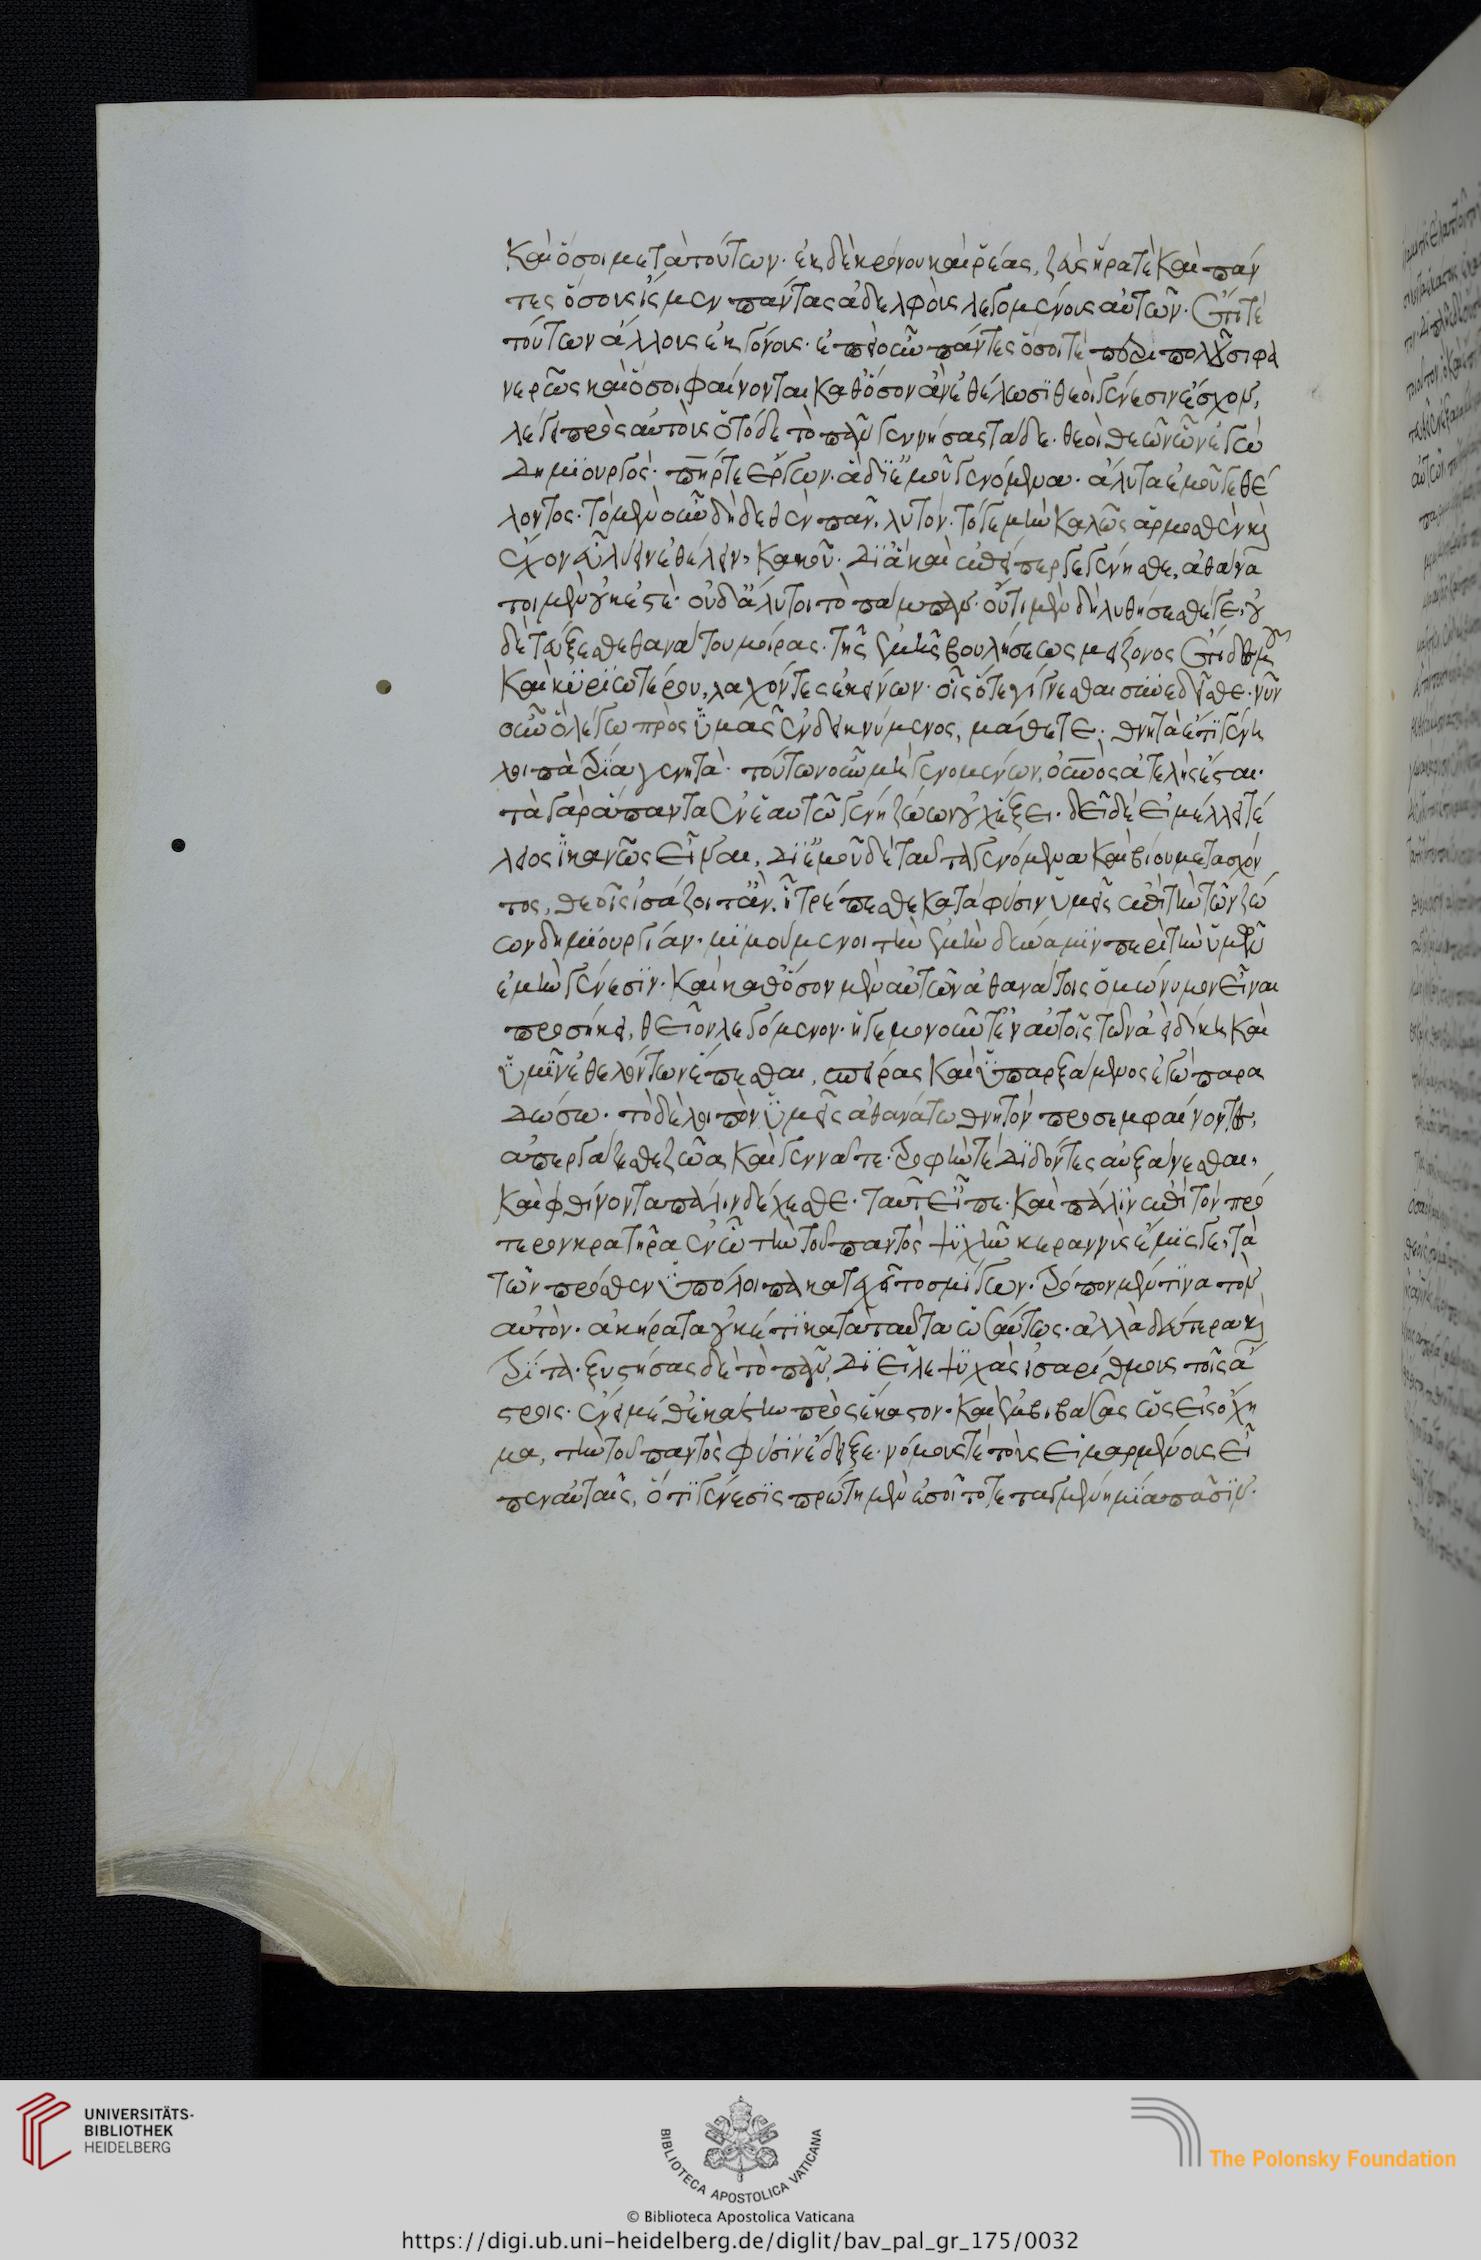 καὶ ὅσοι μετὰ τούτων· ἐκ δὲ κρόνου καὶ ῥέας, ζεὺς ἥρα τὲ καὶ πάν
τες ὅσους ἴσμεν πάντας ἀδελφοὺς λεγομένους αὐτῶν· ἔτι τέ
τούτων ἄλλους ἐκγόνους· ἐπεὶ οὖν πάντες ὅσοι τὲ περιπολοῦσι φα
νερῶς καὶ ὅσοι φαίνονται καθόσον ἂν ἐθέλωσϊ θεοὶ γένεσιν ἔσχον,
λέγει πρὸς αὐτοὺς ὁ τόδε τὸ πᾶν γεννήσας τάδε· θεοὶ θεῶν ὧν ἐγὼ
δημϊουργὸς· πατήρ τε ἔργων· ἃ δϊ ἐμοῦ γενόμενα· ἄλυτα ἐμοῦ γε θέ
λοντος· τὸ μὲν οὖν δὴ δεθὲν πᾶν, λυτόν· τό γε μὴν καλῶς ἁρμοσθὲν καὶ
ἔχον εὖ λύειν ἐθέλειν, κακοῦ· δϊ ἃ καὶ ἐπείπερ γεγένησθε, ἀθάνα
τοι μὲν οὐκ ἐστὲ· οὐδ ἄλυτοι τὸ πάμπαν· οὔτι μὲν δὴ λυθήσεσθέ γε, οὐ
δὲ τεύξεσθε θανάτου μοίρας· τῆς ἐμῆς βουλήσεως μείζονος ἔτι δεσμοῦ
καὶ κϋρϊωτέρου, λαχόντες ἐκείνων· οἷς ὅτε γίγνεσθαι συνεδεῖσθε· νῦν
οὖν ὃ λέγω πρὸς ὑμᾶς ἐνδεικνύμενος, μάθετε· θνητὰ ἔτϊ γένη
λοιπὰ τρία ἀγενητὰ· τούτων οὖν μὴ γενομένων, οὐρανὸς ἀτελὴς ἔσται·
τὰ γὰρ ἅπαντα ἐν ἑαυτῶ γένη ζώων οὐχ ἕξει· δεῖ δὲ εἰ μέλλει τέ
λεος ἱκανῶς εἶναι, δϊ ἐμοῦ δὲ ταῦτα γενόμενα καὶ βίου μετασχόν
τος, θεοῖς ἰσάζοιτ ἂν· τρέπεσθε κατὰ φύσιν ὑμεῖς ἐπὶ τὴν τῶν ζώ
ων δημϊουργίαν· μϊμούμενοι τὴν ἐμὴν δύναμϊν περὶ τὴν ὑμετέραν
ἐμὴν γένεσϊν· καὶ καθόσον μὲν αὐτῶν ἀθανάτοις ὁμώνυμον εἶναι
προσήκει, θεῖον λεγόμενον· ἡγεμονοῦν τ ἐν αὐτοῖς τῶν ἀεὶ δίκη καὶ
ὑμῖν ἐθελόντων ἕπεσθαι, σπείρας καὶ ὑπαρξάμενος ἐγὼ παρα
δώσω· τὸ δὲ λοιπὸν ὑμεῖς ἀθανάτω θνητὸν προσεμφαίνοντες,
ἀπεργάζεσθε ζῶα καὶ γεννᾶτε· τροφήν τέ δϊδόντες αὐξάνεσθαι,
καὶ φθίνοντα πάλιν δέχεσθε· ταῦτ εἶπε· καὶ πάλϊν ἐπὶ τὸν πρό
τερον κρατῆρα ἐν ᾧ τὴν τοῦ παντὸς ψϋχὴν κεραννὺς ἔμϊσγε, τὰ
τῶν πρόσθεν ὑπόλοιπα κατεχεῖτο σμίγων· τρόπον μέν τϊνα τὸν
αὐτὸν· ἀκήρατα οὐκέτϊ κατὰ ταῦτα ὡσαύτως· ἀλλὰ δεύτερα καὶ
τρίτα· ξυστήσας δὲ τὸ πᾶν, δϊεῖλε ψϋχὰς ἰσαρίθμους τοῖς ἄ
στροις· ἔνειμέ θ ἑκάστην πρὸς ἕκαστον· καὶ ἐμβιβάσας ὡς εἰς ὄχη
μα, τὴν τοῦ παντὸς φύσϊν ἔδειξε· νόμους τὲ τοὺς εἱμαρμένους εἶ
πεν αὐταῖς, ὅτϊ γένεσϊς πρώτη μὲν ἔσοιτο τεταγμένη μία πᾶσϊν·
UNIVERSITÄTS-
BIBLIOTHEK
HEIDELBERG
BIBLIOTECA APOSTOLICA VATICANA
The Polonsky Foundation
© Biblioteca Apostolica Vaticana
https://digi.ub.uni-heidelberg.de/diglit/bav_pal_gr_175/0032